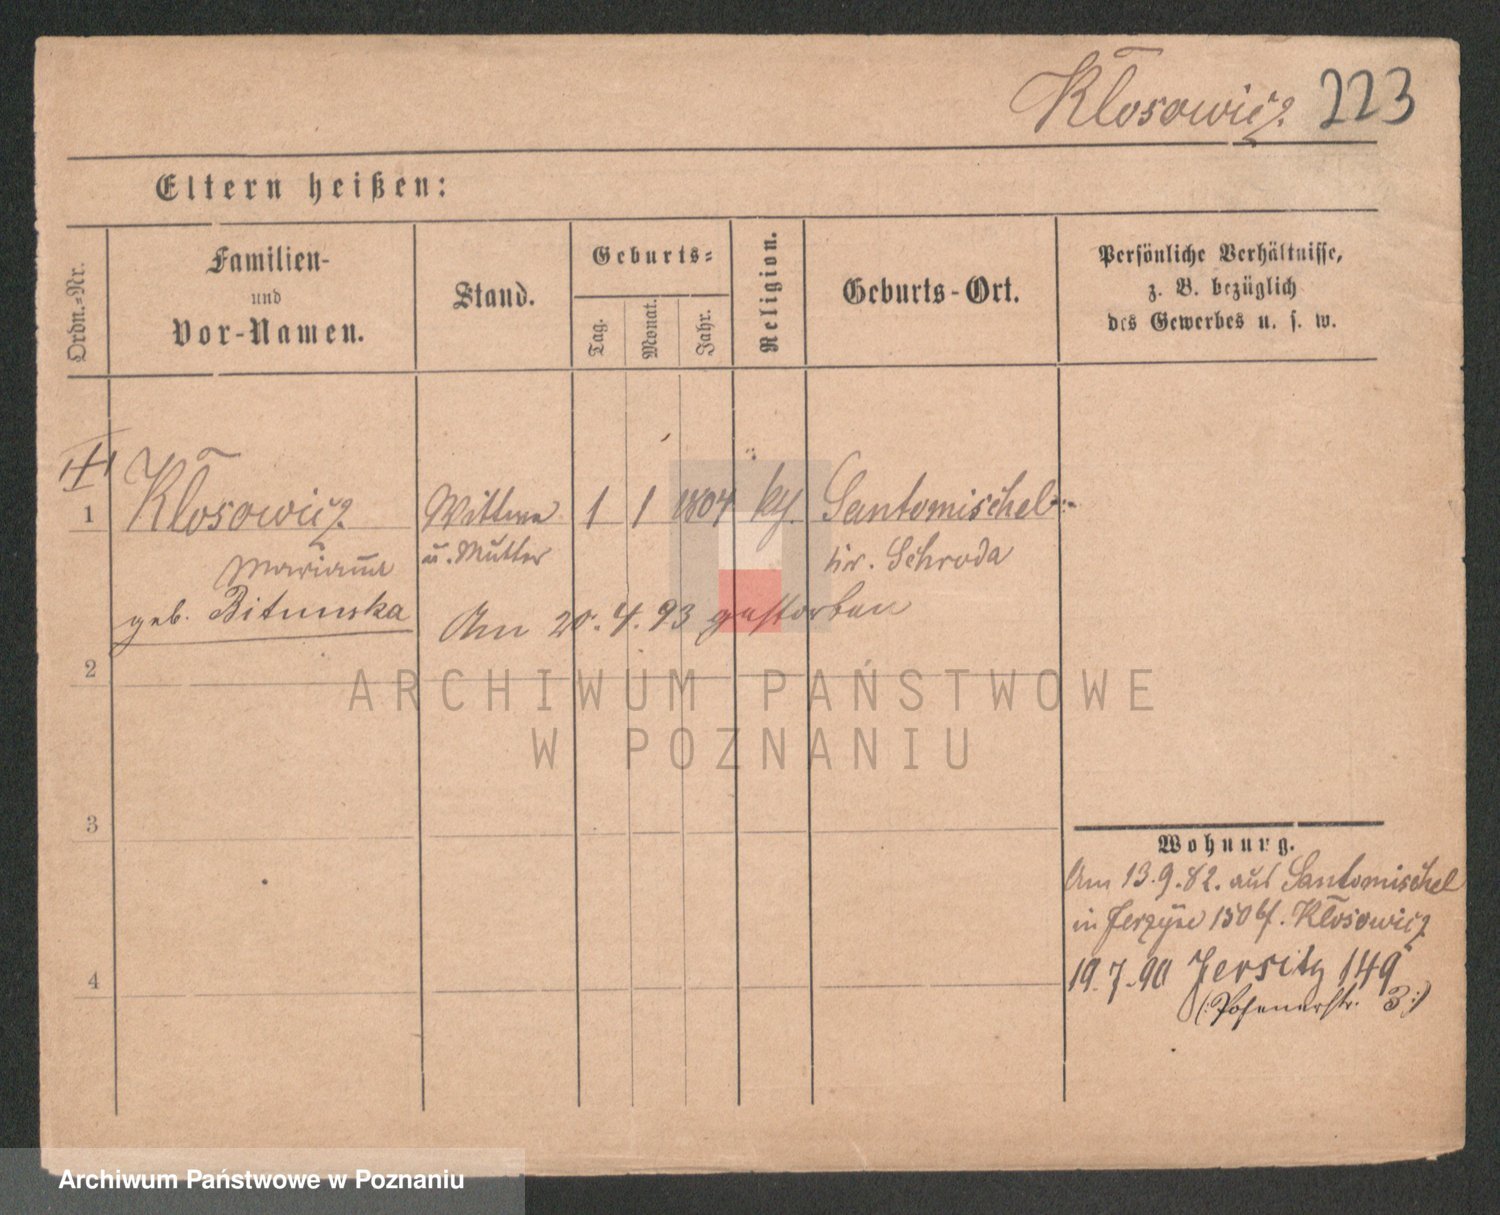 Kłosowicz. 223
Eltern heißen:
Ordn.-Nr.
Familien-
und
Vor-Namen.
Stand.
Geburts-
Tag.
Monat.
Jahr.
Religion.
Geburts-Ort.
Persönliche Verhältnisse,
z. B. bezüglich
des Gewerbes u. s. w.
1 Kłosowicz Wittwe 1 1 1804 Santomischel
Marianna u. Mutter Kr. Schroda
geb.
Am 20.4.93 gestorben
2
3
4
Wohnung.
Am 13.9.82. aus Santomischel
in 150 Kłosowicz
19.7.90 Jersitz 149
(:Posenerstr. 3:)
ARCHIWUM PAŃSTWOWE
W POZNANIU
Archiwum Państwowe w Poznaniu